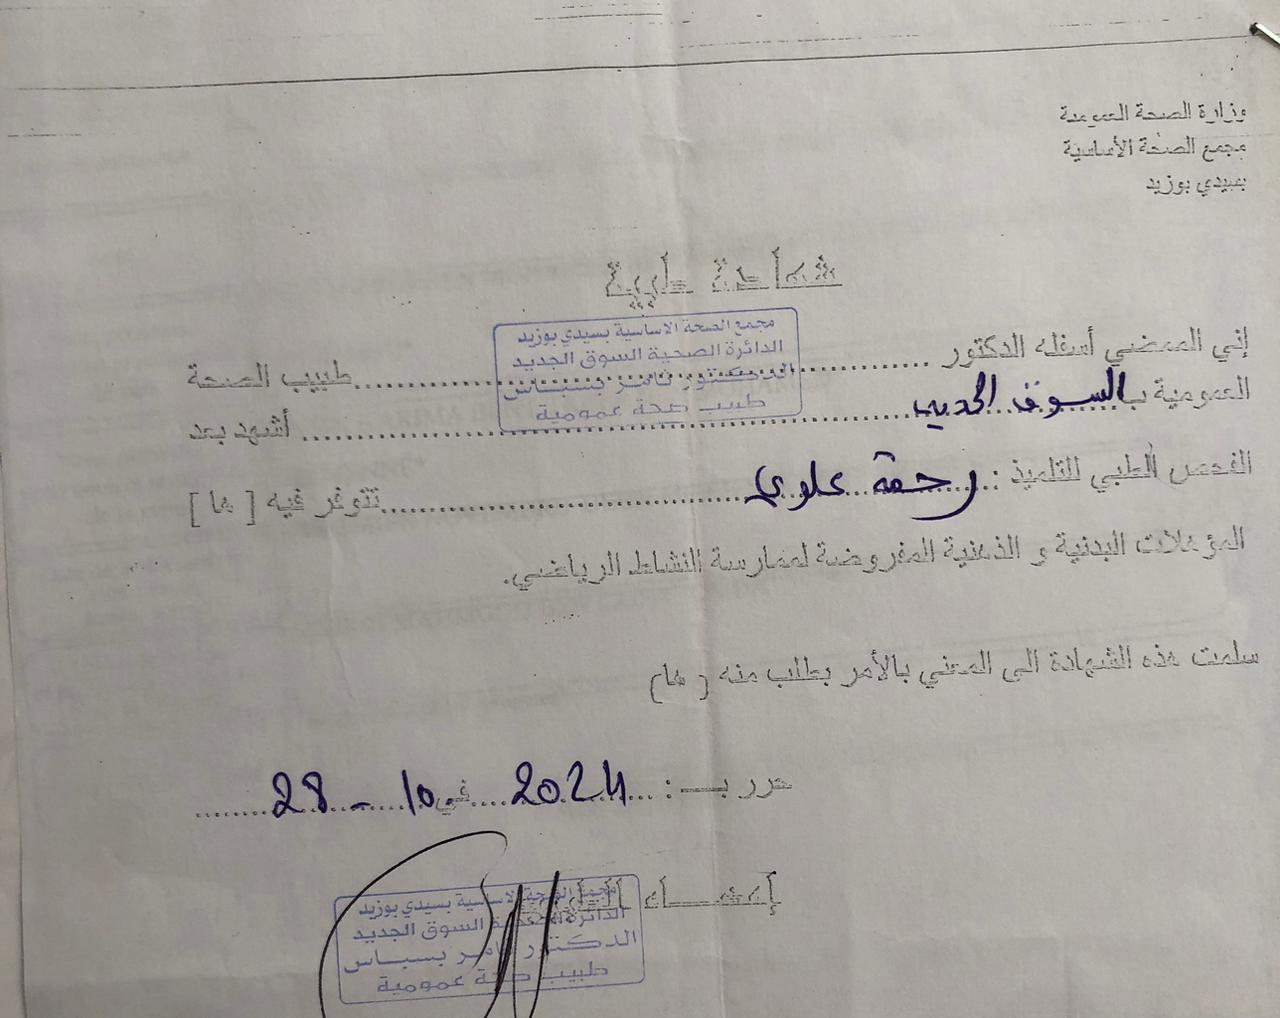 وزارة الصحة العمومية
مجمع الصحة الأساسية
بسيدي بوزيد
شهادة طبية
مجمع الصحة الاساسية بسيدي بوزيد
الدائرة الصحية السوق الجديد
الدكتور ثامر بسباس
طبيب صحة عمومية
إني الممضي أسفله الدكتور ........ طبيب الصحة
العمومية بالسوق الجديد ........ أشهد بعد
الفحص الطبي للتلميذ : رحمة علوي ........ تتوفر فيه [ ها ]
المؤهلات البدنية و الذهنية المفروضة لممارسة النشاط الرياضي.
سلمت هذه الشهادة الى المعني بالأمر بطلب منه ( ها)
حرر بـ : ... 2024 .... في 10 - 28 ........
إمضاء
مجمع الصحة الاساسية بسيدي بوزيد
الدائرة الصحية السوق الجديد
الدكتور ثامر بسباس
طبيب صحة عمومية